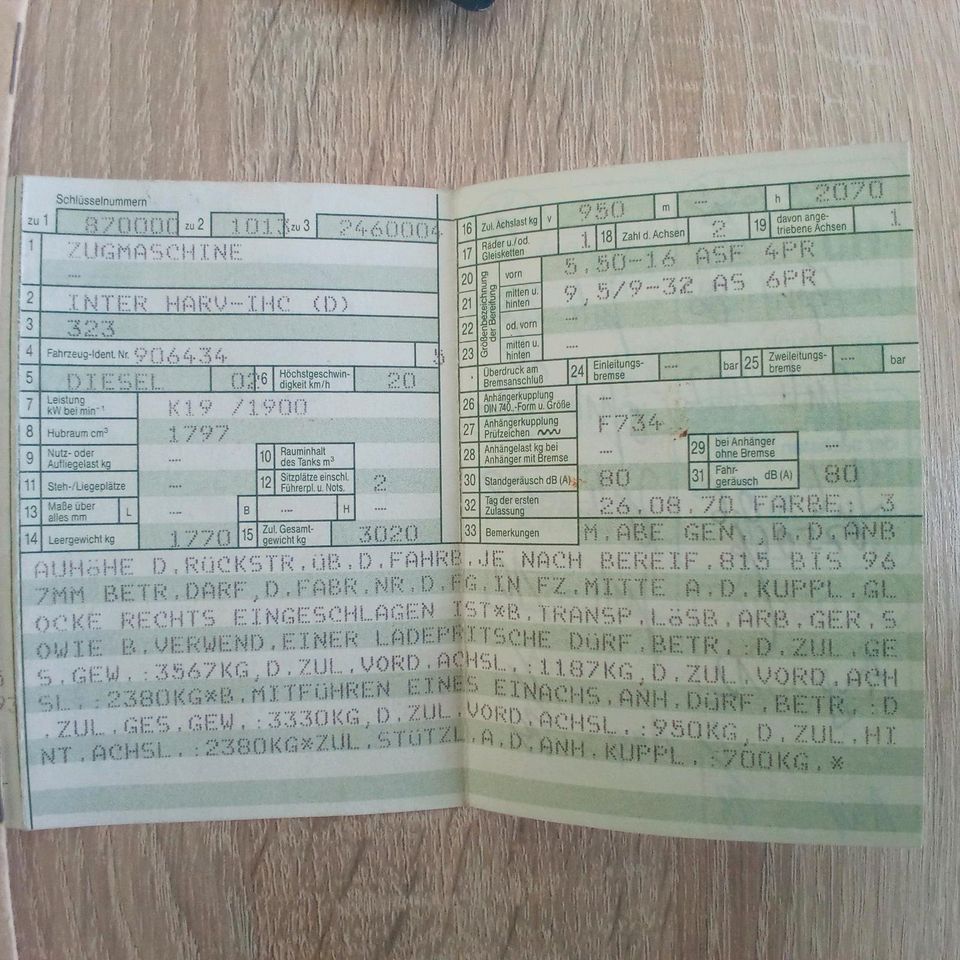 Schlüsselnummern
zu 1 870000 zu 2 1013 zu 3 2460004
1 ZUGMASCHINE
----
2 INTER HARV-IHC (D)
3 323
4 Fahrzeug-Ident. Nr. 906434 5
5 DIESEL 02 6 Höchstgeschwin-digkeit km/h 20
7 Leistung kW bei min⁻¹ K19 /1900
8 Hubraum cm³ 1797
9 Nutz- oder Aufliegelast kg ---- 10 Rauminhalt des Tanks m³ ----
11 Steh-/Liegeplätze ---- 12 Sitzplätze einschl. Führerpl. u. Nots. 2
13 Maße über alles mm L ---- B ---- H ----
14 Leergewicht kg 1770 15 Zul. Gesamt-gewicht kg 3020
16 Zul. Achslast kg v 950 m ---- h 2070
17 Räder u./od. Gleisketten 1 18 Zahl d. Achsen 2 19 davon ange-triebene Achsen 1
Größenbezeichnung der Bereifung
20 vorn 5,50-16 ASF 4PR
21 mitten u. hinten 9,5/9-32 AS 6PR
22 od. vorn ----
23 mitten u. hinten ----
Überdruck am Bremsanschluß 24 Einleitungs-bremse ---- bar 25 Zweileitungs-bremse ---- bar
26 Anhängerkupplung DIN 740..-Form u. Größe ----
27 Anhängerkupplung Prüfzeichen F734
28 Anhängelast kg bei Anhänger mit Bremse ---- 29 bei Anhänger ohne Bremse ----
30 Standgeräusch dB (A) 80 31 Fahr-geräusch dB (A) 80
32 Tag der ersten Zulassung 26.08.70 FARBE: 3
33 Bemerkungen M.ABE GEN.,D.D.ANB
AUHÖHE D.RÜCKSTR.ÜB.D.FAHRB.JE NACH BEREIF.815 BIS 96
7MM BETR.DARF,D.FABR.NR.D.FG.IN FZ.MITTE A.D.KUPPL.GL
OCKE RECHTS EINGESCHLAGEN IST*B.TRANSP.LÖSB.ARB.GER.S
OWIE B.VERWEND.EINER LADEPRITSCHE DÜRF.BETR.:D.ZUL.GE
S.GEW.:3567KG,D.ZUL.VORD.ACHSL.:1187KG,D.ZUL.VORD.ACH
SL.:2380KG*B.MITFÜHREN EINES EINACHS.ANH.DÜRF.BETR.:D
.ZUL.GES.GEW.:3330KG,D.ZUL.VORD.ACHSL.:950KG,D.ZUL.HI
NT.ACHSL.:2380KG*ZUL.STÜTZL.A.D.ANH.KUPPL.:700KG.*